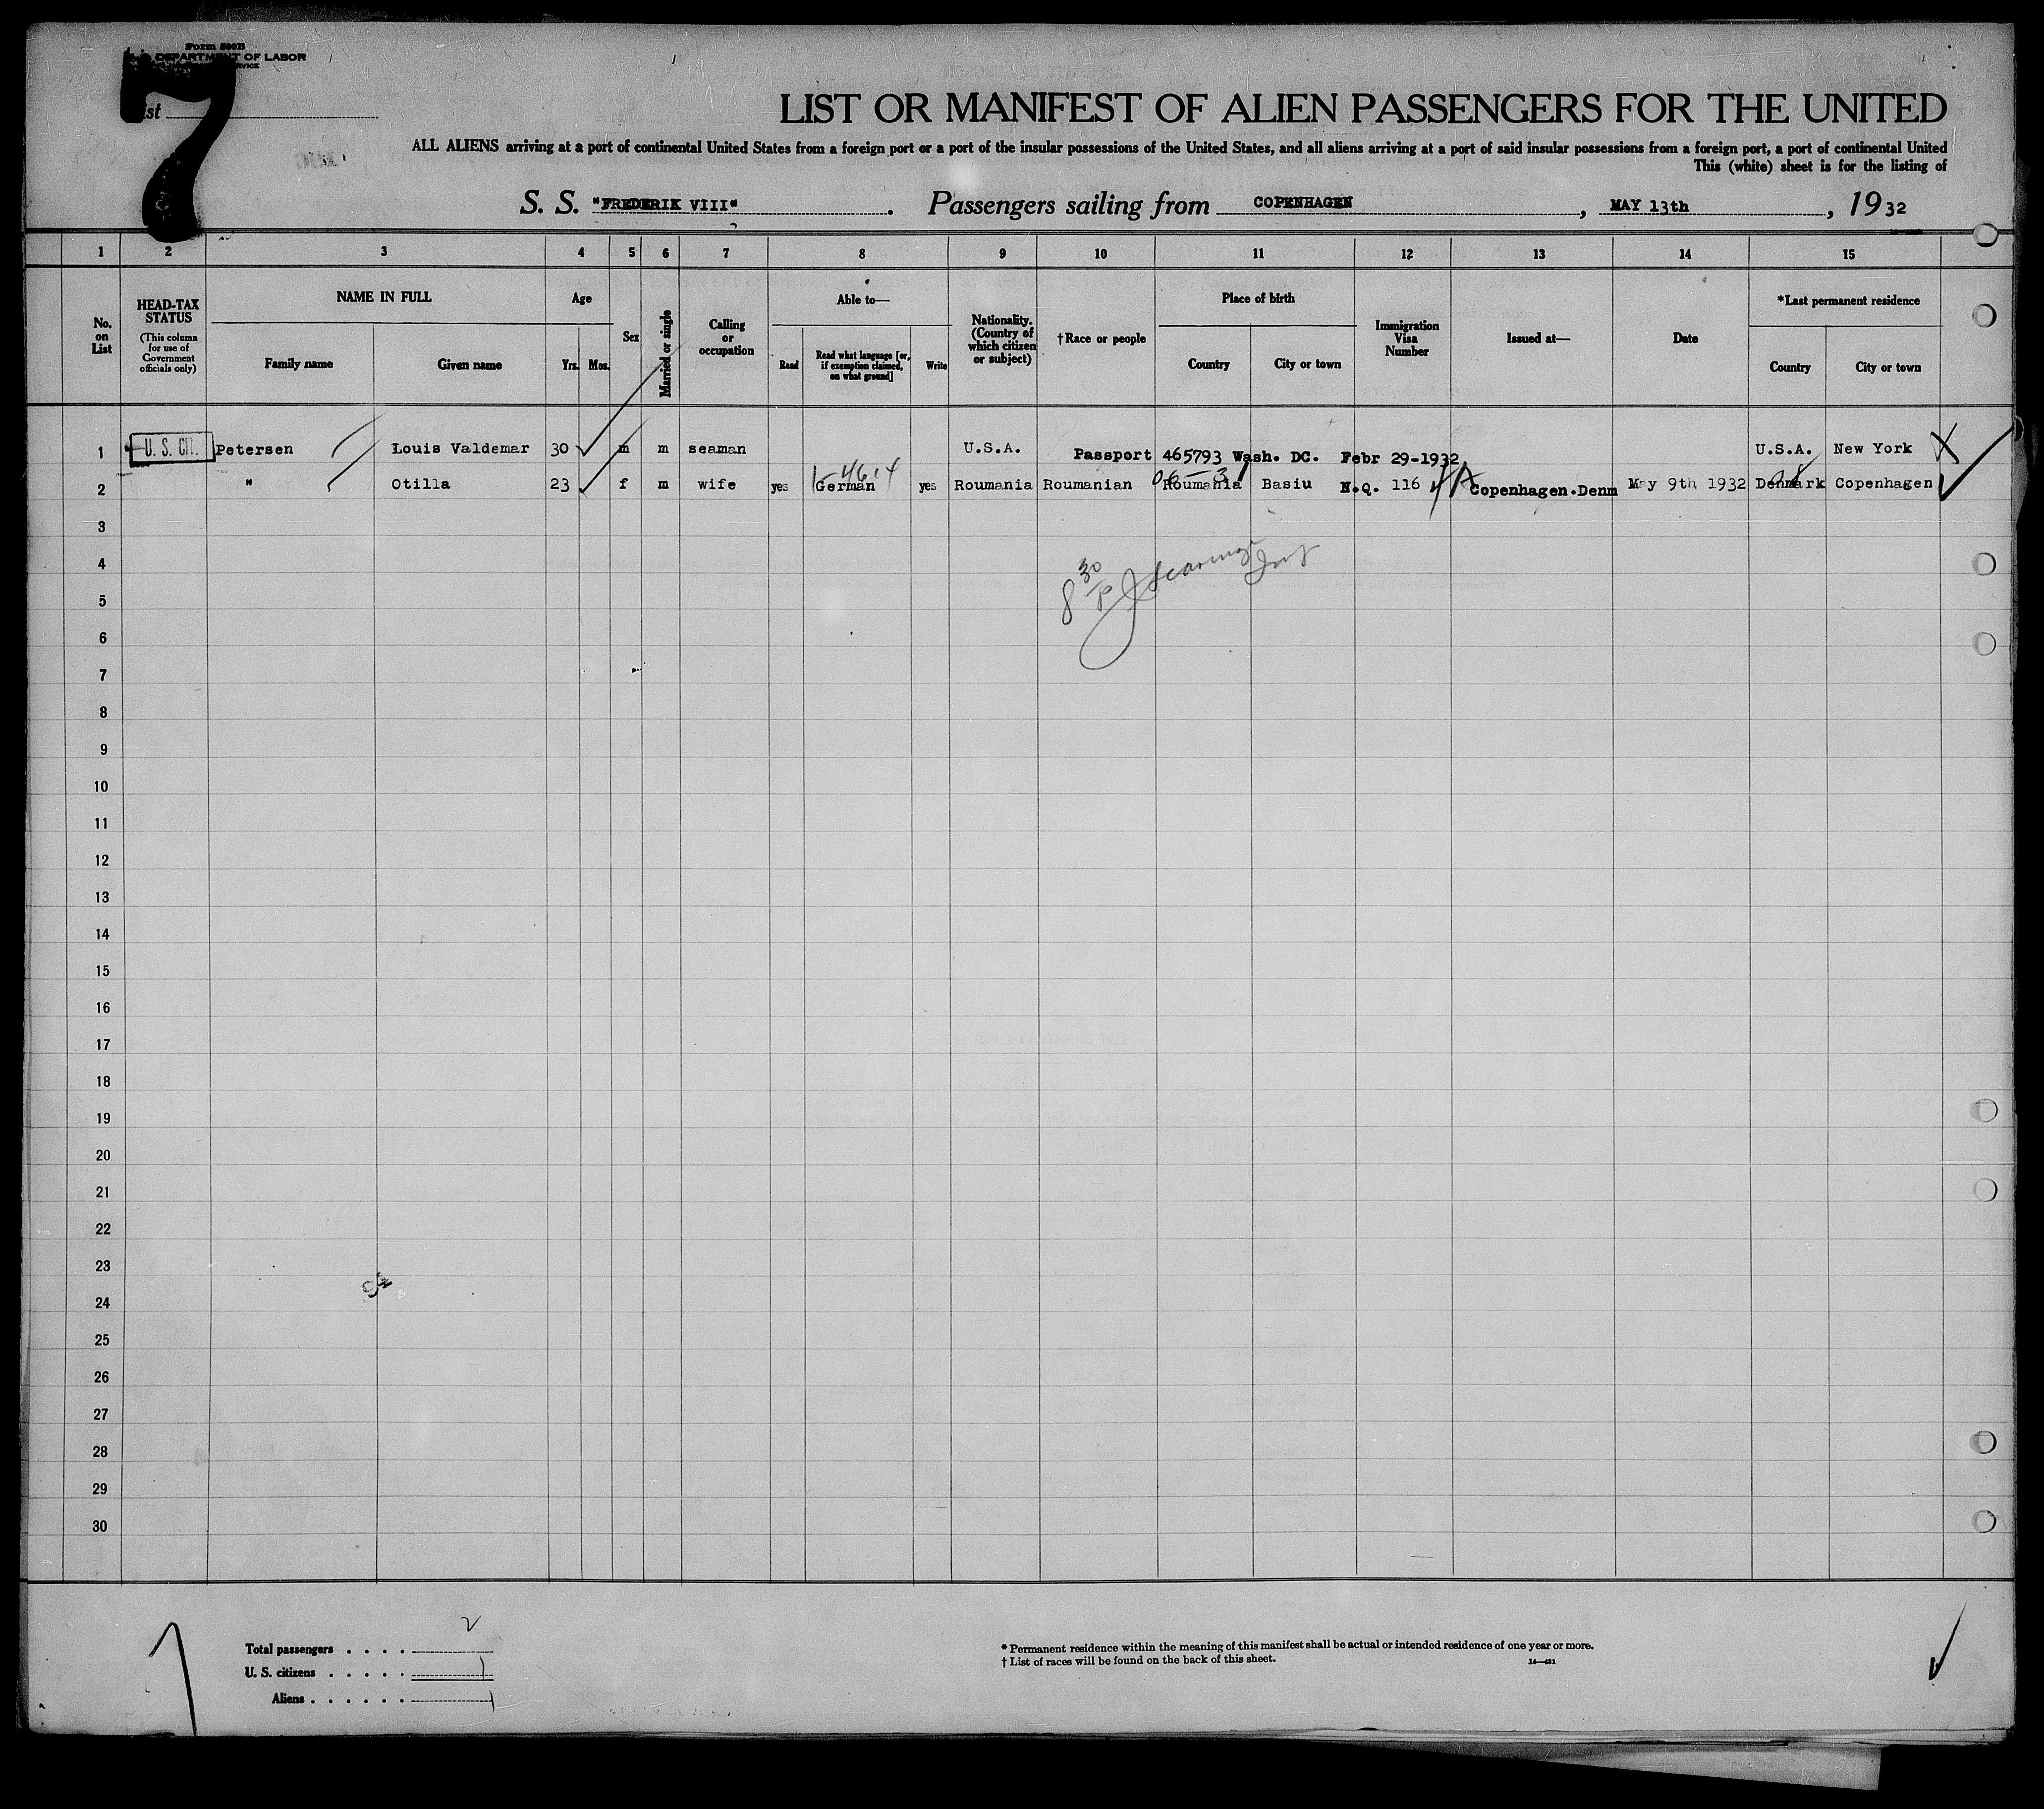 Form 500B
DEPARTMENT OF LABOR
7
LIST OR MANIFEST OF ALIEN PASSENGERS FOR THE UNITED
ALL ALIENS arriving at a port of continental United States from a foreign port or a port of the insular possessions of the United States, and all aliens arriving at a port of said insular possessions from a foreign port, a port of continental United
This (white) sheet is for the listing of
S. S. "FREDERIK VIII". Passengers sailing from COPENHAGEN, MAY 13th, 1932
1 2 3 4 5 6 7 8 9 10 11 12 13 14 15
No. on List
HEAD-TAX STATUS
(This column for use of Government officials only)
NAME IN FULL
Family name Given name
Age
Yrs. Mos.
Sex
Married or single
Calling or occupation
Able to—
Read
Read what language [or, if exemption claimed, on what ground]
Write
Nationality. (Country of which citizen or subject)
†Race or people
Place of birth
Country City or town
Immigration Visa Number
Issued at—
Date
*Last permanent residence
Country City or town
1 U. S. CIT. Petersen Louis Valdemar 30 m m seaman U.S.A. Passport 465793 Wash. DC. Febr 29-1932 U.S.A. New York X
2 " Otilla 23 f m wife yes German yes Roumania Roumanian Roumania Basiu N.Q. 116 Copenhagen.Denm May 9th 1932 Denmark Copenhagen
3
4
5
6
7
8
9
10
11
12
13
14
15
16
17
18
19
20
21
22
23
24
25
26
27
28
29
30
Total passengers . . . . 2
U. S. citizens . . . . . 1
Aliens . . . . . . 1
* Permanent residence within the meaning of this manifest shall be actual or intended residence of one year or more.
† List of races will be found on the back of this sheet.
14—431